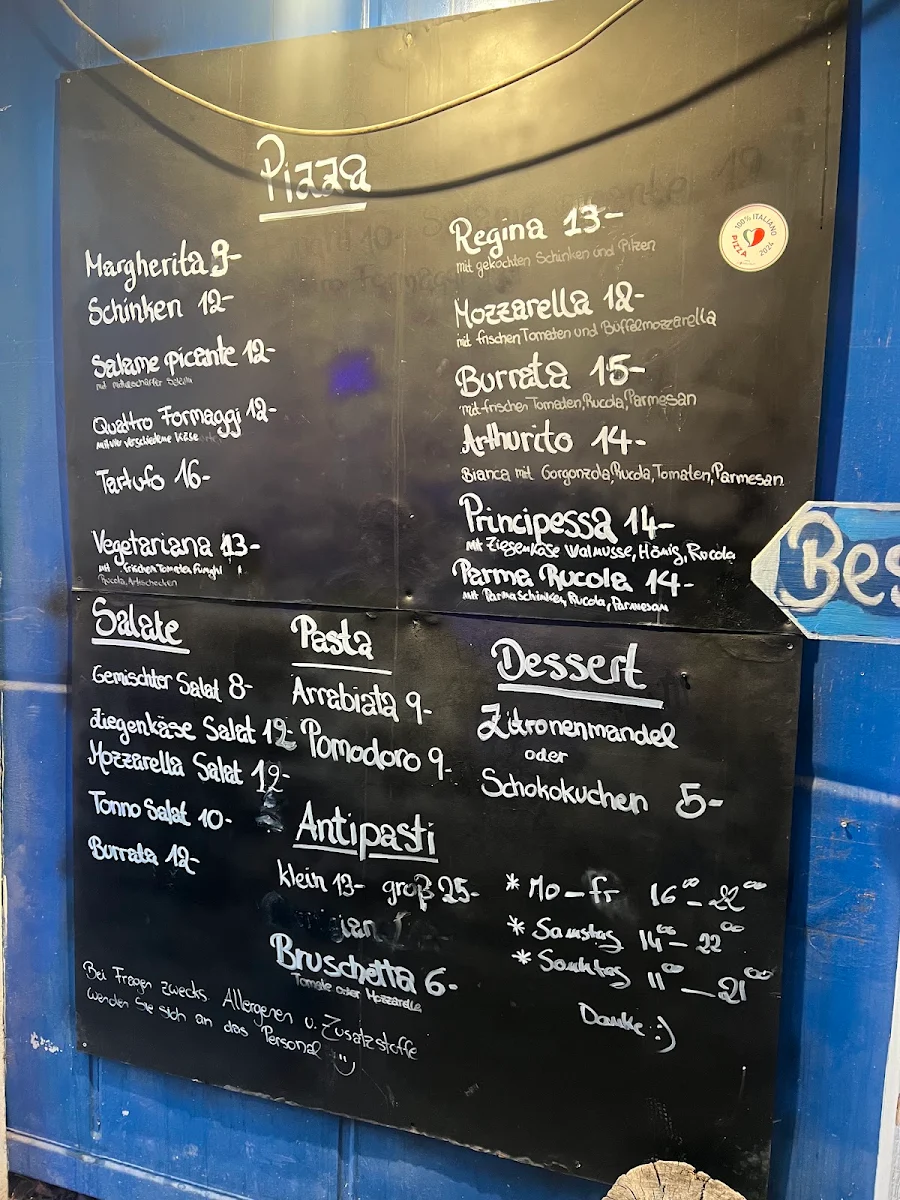 Pizza
Margherita 9-
Schinken 12-
Salame picante 12-
mit mittelscharfer Salami
Quattro Formaggi 12-
mit vier verschiedene Käse
Tartufo 16-
Vegetariana 13-
mit frischen Tomaten, Funghi
Rucola, Artischocken
Regina 13-
mit gekochten Schinken und Pilzen
Mozzarella 12-
mit frischen Tomaten und Büffelmozzarella
Burrata 15-
mit frischen Tomaten, Rucola, Parmesan
Arthurito 14-
Bianca mit Gorgonzola, Rucola, Tomaten, Parmesan
Principessa 14-
mit Ziegenkäse Walnüsse, Hönig, Rucola
Parma Rucola 14-
mit Parma Schinken, Rucola, Parmesan
100% ITALIANO
PIZZA 2024
Bes
Salate
Gemischter Salat 8-
Ziegenkäse Salat 12-
Mozzarella Salat 12-
Tonno Salat 10-
Burrata 12-
Pasta
Arrabiata 9-
Pomodoro 9-
Antipasti
klein 13- groß 25-
Bruschetta 6-
Tomate oder Mozzarella
Dessert
Zitronenmandel
oder
Schokokuchen 5-
* Mo – Fr 16⁰⁰ – 22⁰⁰
* Samstag 14⁰⁰ – 22⁰⁰
* Sonntag 11⁰⁰ – 21⁰⁰
Danke :)
Bei Fragen zwecks Allergenen u. Zusatzstoffe
wenden Sie sich an das Personal :)